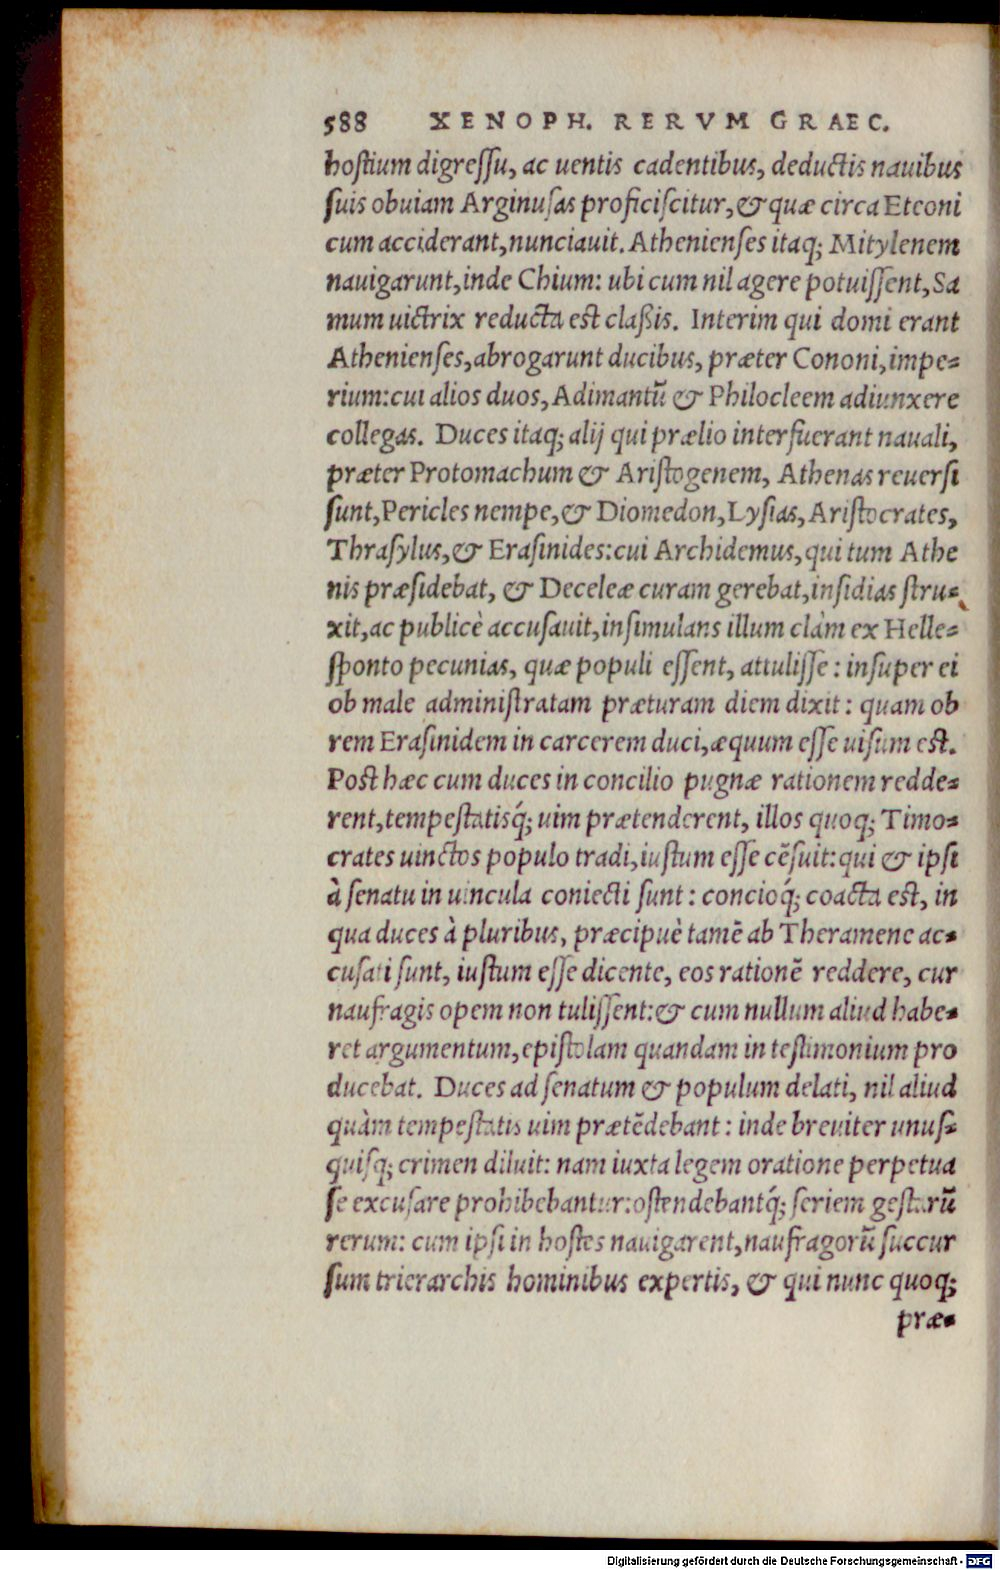 588 XENOPH. RERVM GRAEC.
hostium digressu, ac uentis cadentibus, deductis nauibus
suis obuiam Arginusas proficiscitur, & quæ circa Eteoni
cum acciderant, nunciauit. Athenienses itaq; Mitylenem
nauigarunt, inde Chium: ubi cum nil agere potuissent, Sa
mum uictrix reducta est claßis. Interim qui domi erant
Athenienses, abrogarunt ducibus, præter Cononi, impe-
rium: cui alios duos, Adimantū & Philocleem adiunxere
collegas. Duces itaq; alij qui prælio interfuerant nauali,
præter Protomachum & Aristogenem, Athenas reuersi
sunt, Pericles nempe, & Diomedon, Lysias, Aristocrates,
Thrasylus, & Erasinides: cui Archidemus, qui tum Athe
nis præsidebat, & Deceleæ curam gerebat, insidias stru-
xit, ac publicè accusauit, insimulans illum clàm ex Helle-
sponto pecunias, quæ populi essent, attulisse: insuper ei
ob male administratam præturam diem dixit: quam ob
rem Erasinidem in carcerem duci, æquum esse uisum est.
Post hæc cum duces in concilio pugnæ rationem redde-
rent, tempestatisq́; uim prætenderent, illos quoq; Timo-
crates uinctos populo tradi, iustum esse cēsuit: qui & ipsi
à senatu in uincula coniecti sunt: concioq́; coacta est, in
qua duces à pluribus, præcipuè tamē ab Theramene ac-
cusati sunt, iustum esse dicente, eos rationē reddere, cur
naufragis opem non tulissent: & cum nullum aliud habe-
ret argumentum, epistolam quandam in testimonium pro
ducebat. Duces ad senatum & populum delati, nil aliud
quàm tempestatis uim prætēdebant: inde breuiter unus-
quisq; crimen diluit: nam iuxta legem oratione perpetua
se excusare prohibebantur: ostendebantq́; seriem gestarū
rerum: cum ipsi in hostes nauigarent, naufragorū succur
sum trierarchis hominibus expertis, & qui nunc quoq;
præ-
Digitalisierung gefördert durch die Deutsche Forschungsgemeinschaft - DFG